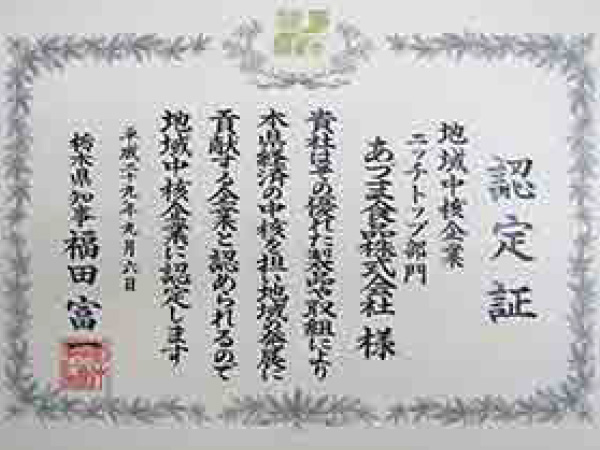 認定証
地域中核企業
ニッチトップ部門
あづま食品株式会社 様
貴社はその優れた製品や取組により
本県経済の中核を担い地域の発展に
貢献する企業と認められるので
地域中核企業に認定します
平成二十九年九月六日
栃木県知事 福田富一